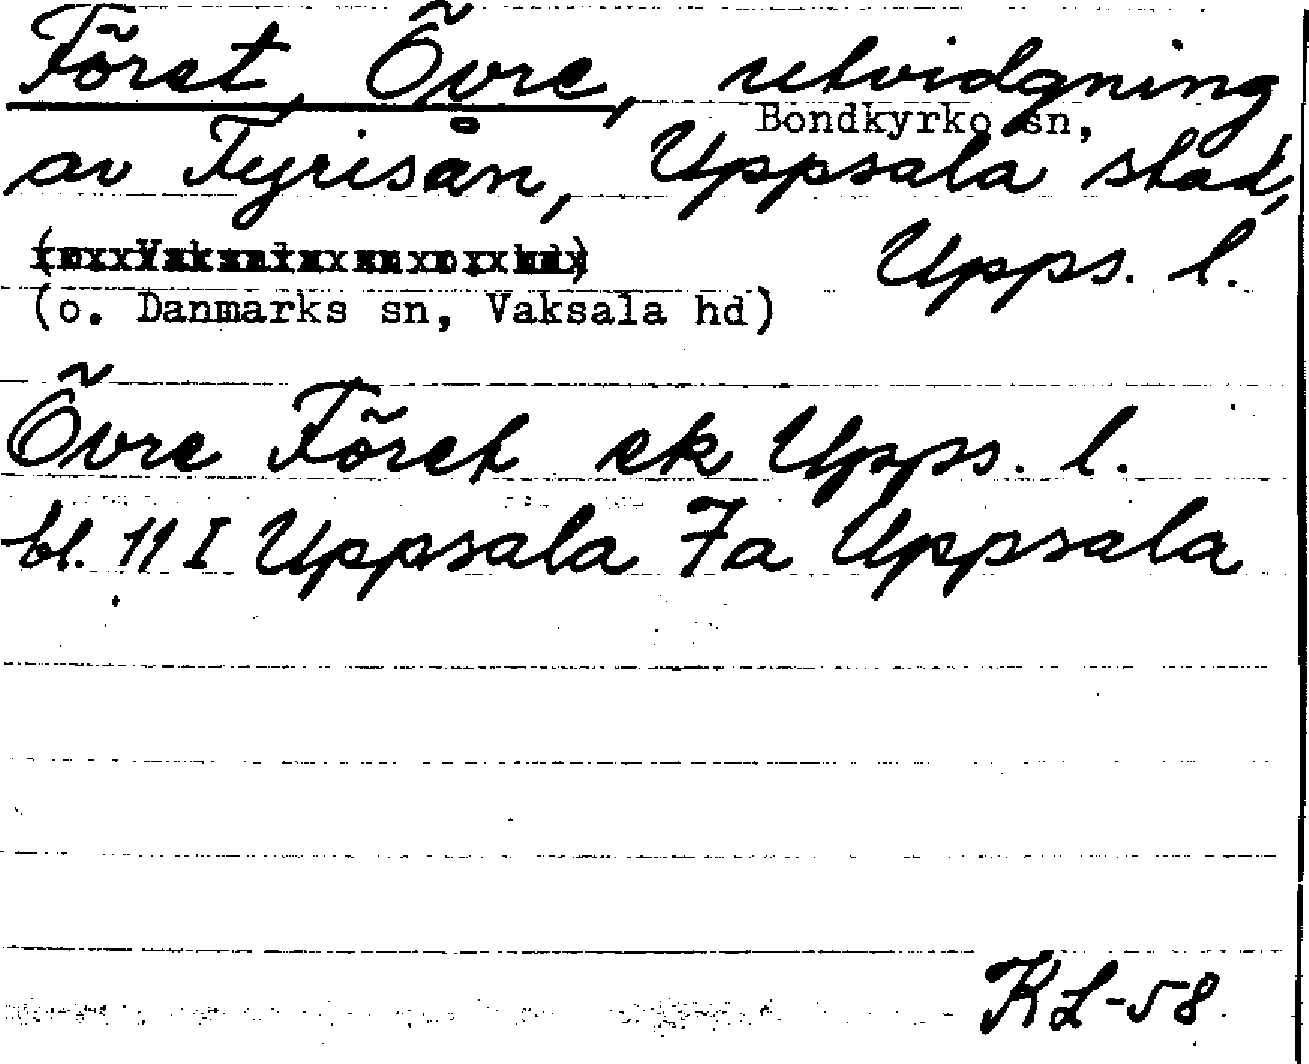 Föret, Övre, utvidgning
Bondkyrko sn,
av Fyrisån, Uppsala stad,
Upps. l.
(o. Danmarks sn, Vaksala hd)
Övre Föret ek Upps. l.
bl. 11 I Uppsala 7a Uppsala
KL-58.